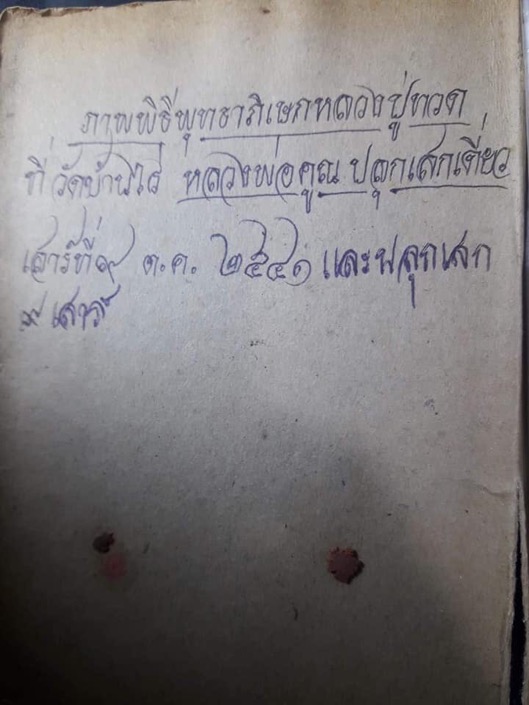 ภาพพิธีพุทธาภิเษกหลวงปู่ทวด
ที่วัดบ้านไร่ หลวงพ่อคูณ ปลุกเสกเดี่ยว
เสาร์ที่ ต.ค. ๒๕๔๑ และปลุกเสก
๙ เสาร์